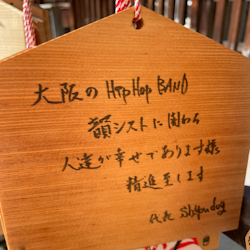 大阪のHipHop BAND
韻シストに関わる
人達が幸せであります様
精進至します
代表 Shyoudog